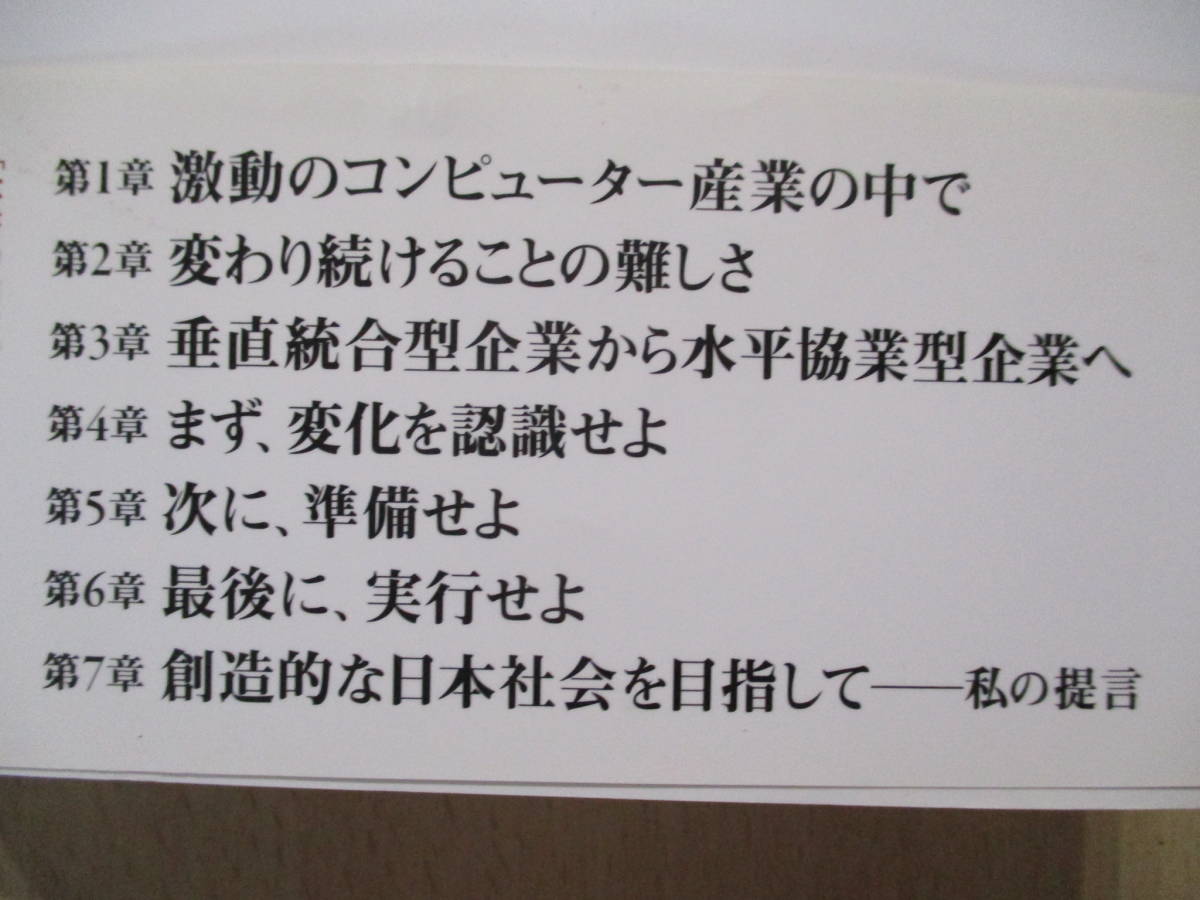 第1章 激動のコンピューター産業の中で
第2章 変わり続けることの難しさ
第3章 垂直統合型企業から水平協業型企業へ
第4章 まず、変化を認識せよ
第5章 次に、準備せよ
第6章 最後に、実行せよ
第7章 創造的な日本社会を目指して——私の提言